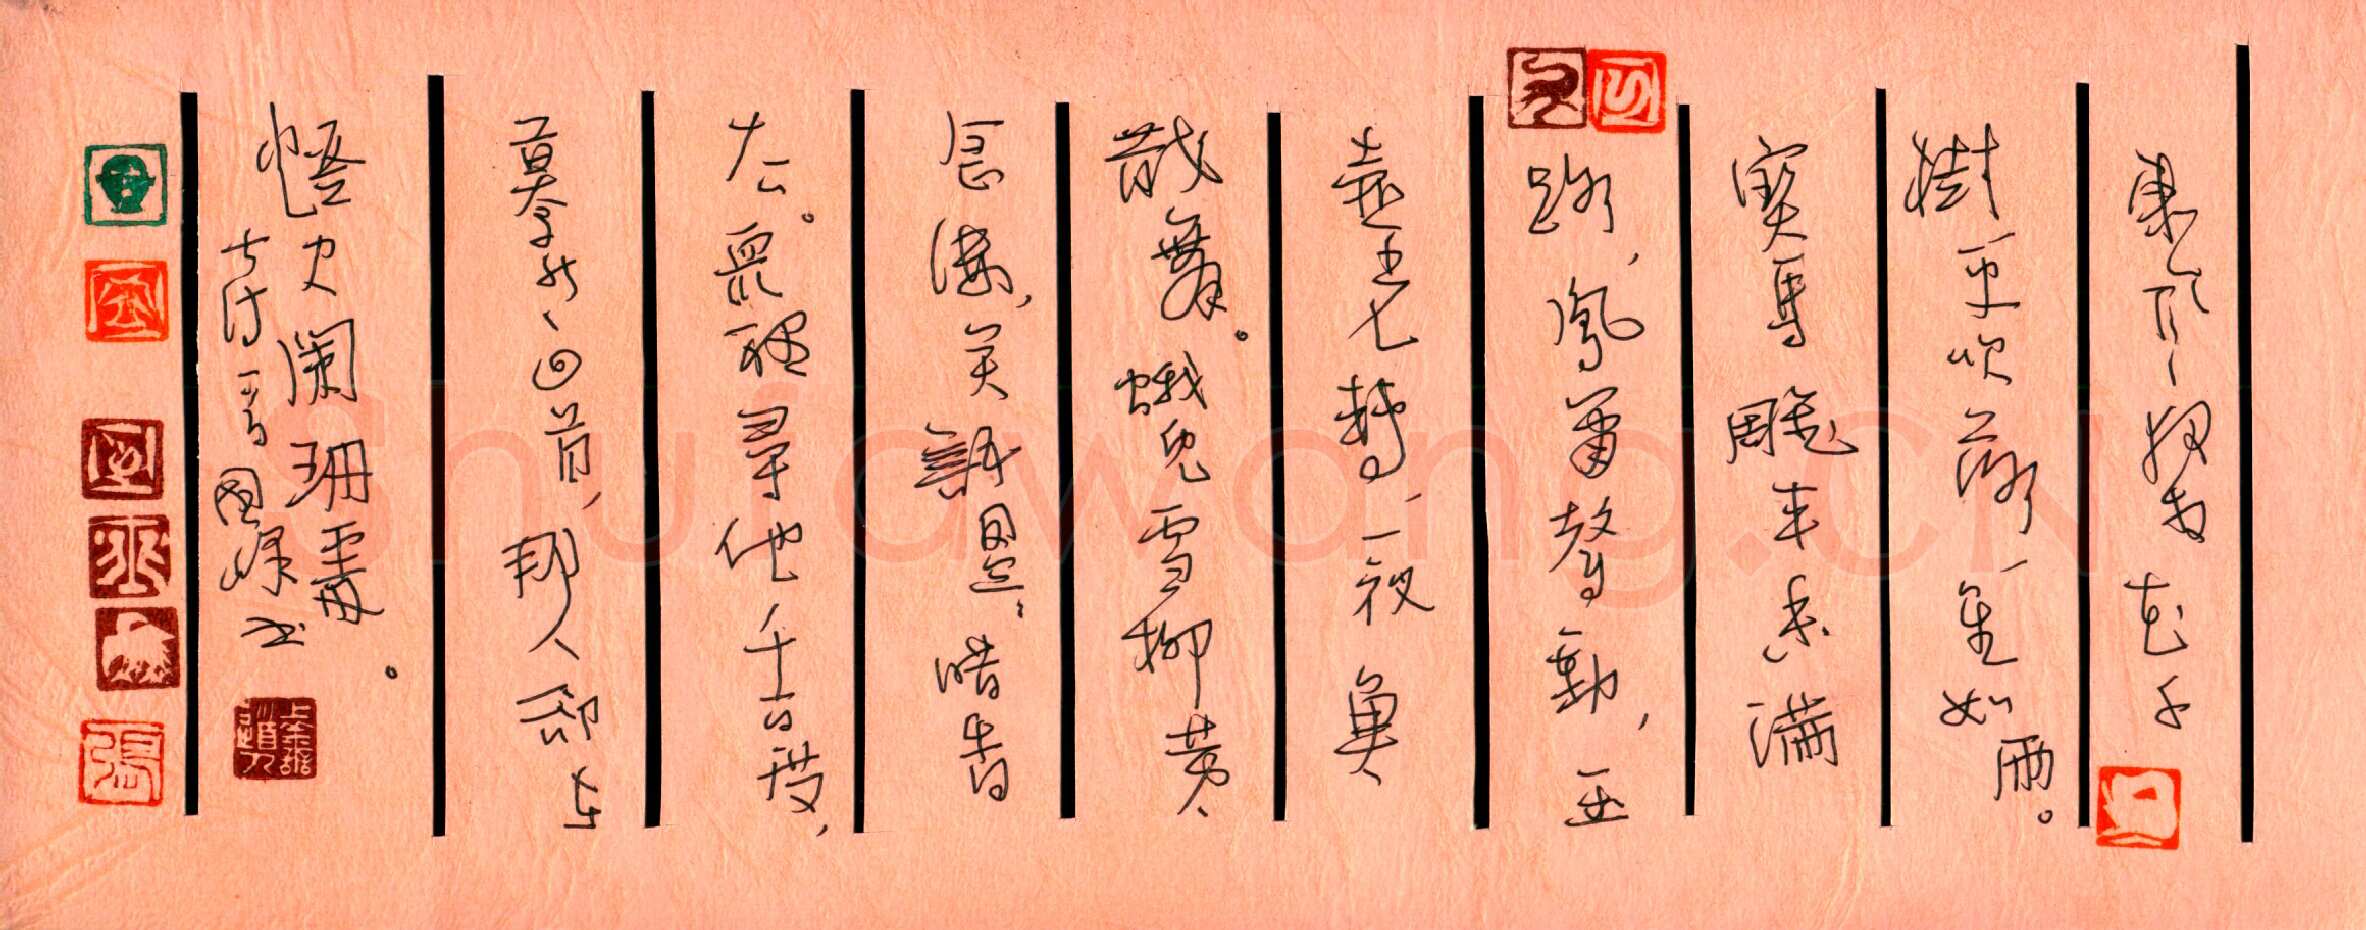 東風夜放花千
樹更吹落、星如雨。
寶馬雕車香滿
路,鳳簫聲動,玉
壺光轉,一夜魚
龍舞。蛾兒雪柳黃
金縷,笑語盈盈暗香
去。眾裡尋他千百度,
驀然回首,那人卻在
燈火闌珊處。
古詩一首國峰書
Shufawang.CN